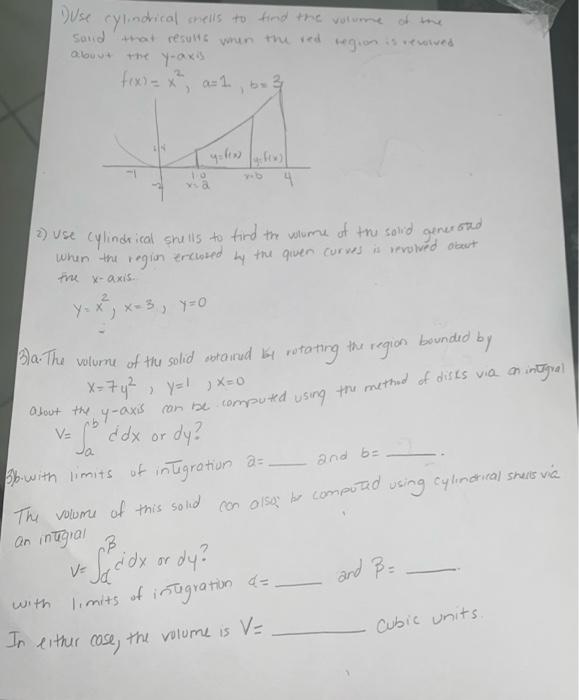 1) Use cylindrical shells to find the volume of the
solid that results when the red region is revolved
about the y-axis
f(x) = x², a=1, b=3
y=f(x) y=f(x)
-1 1.0 x=b 4
-2 x=a
2) Use cylindrical shells to find the volume of the solid generated
when the region enclosed by the given curves is revolved about
the x-axis.
y=x², x=3, y=0
3)a. The volume of the solid obtained by rotating the region bounded by
x=7y², y=1, x=0
about the y-axis can be computed using the method of disks via an integral
V= ∫ₐᵇ dx or dy?
3b. with limits of integration a= ___ and b= ___.
The volume of this solid can also be computed using cylindrical shells via
an integral
V= ∫_α^β dx or dy?
with limits of integration α= ___ and β= ___.
In either case, the volume is V= ___ cubic units.